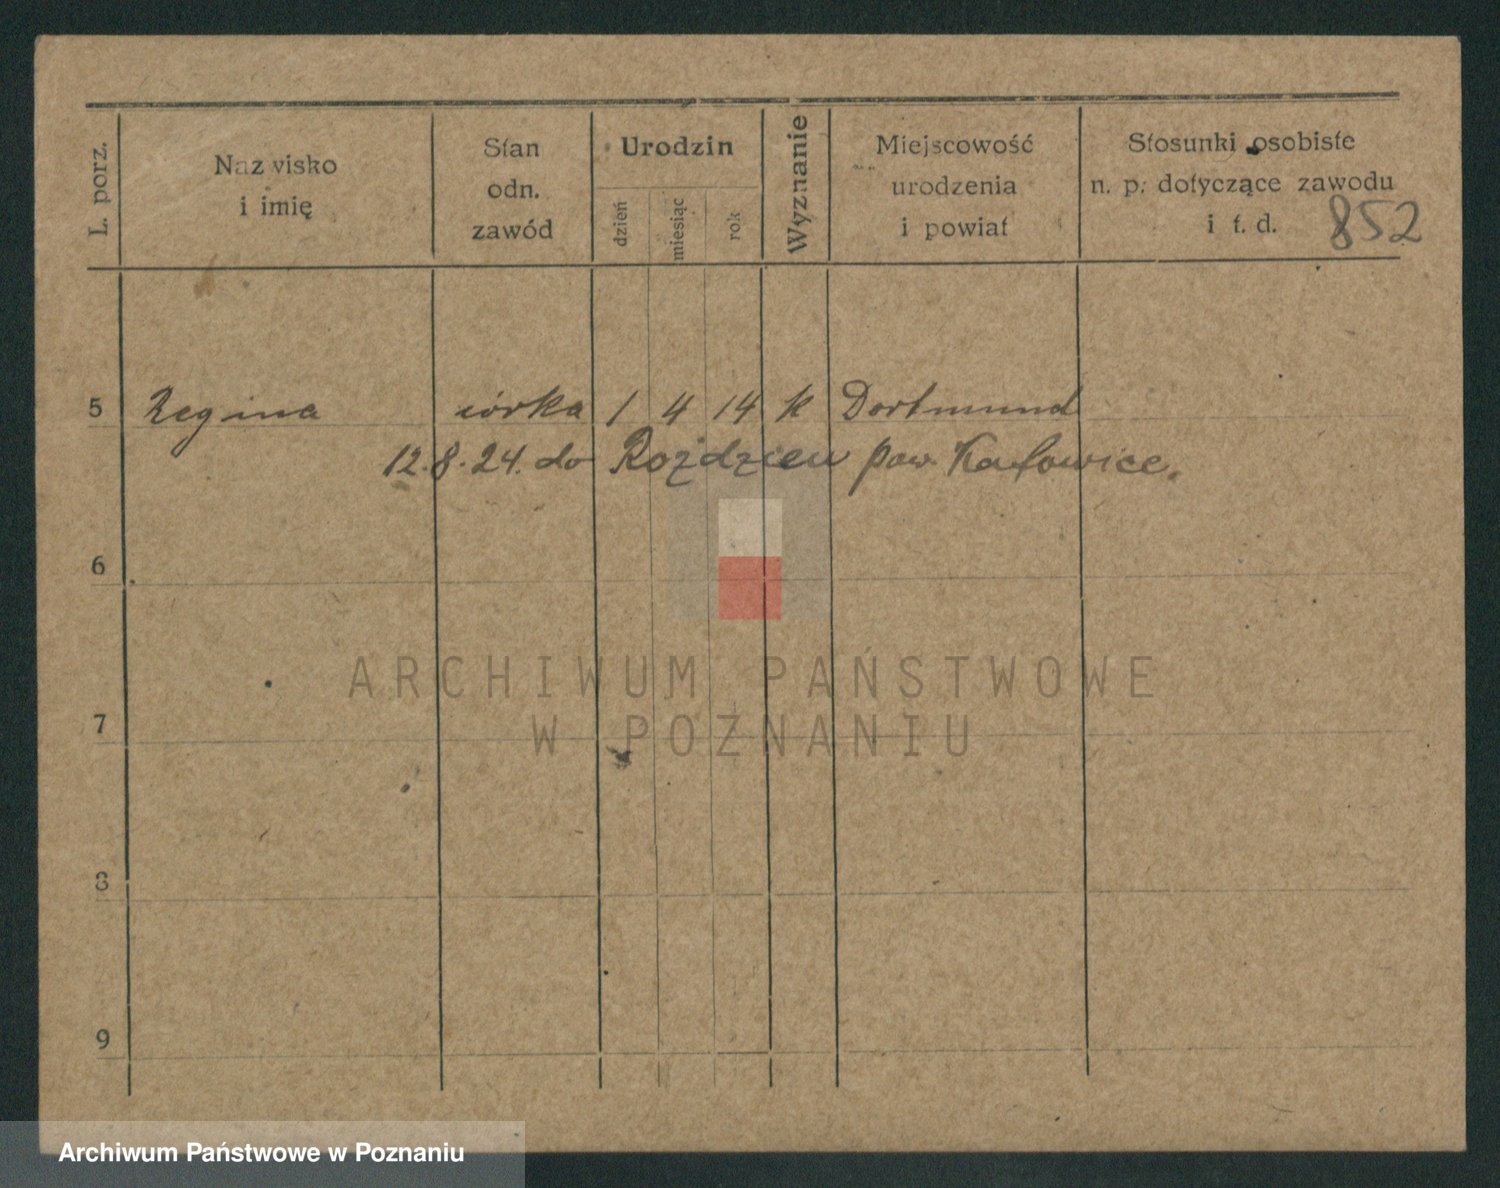 L. porz.
Nazwisko
i imię
Stan
odn.
zawód
Urodzin
dzień
miesiąc
rok
Wyznanie
Miejscowość
urodzenia
i powiat
Stosunki osobiste
n. p. dotyczące zawodu
i t. d.
852
5 Regina córka 1 4 14 k Dortmund
12.8.24. do Roździeń pow. Katowice.
6
ARCHIWUM PAŃSTWOWE
W POZNANIU
7
8
9
Archiwum Państwowe w Poznaniu